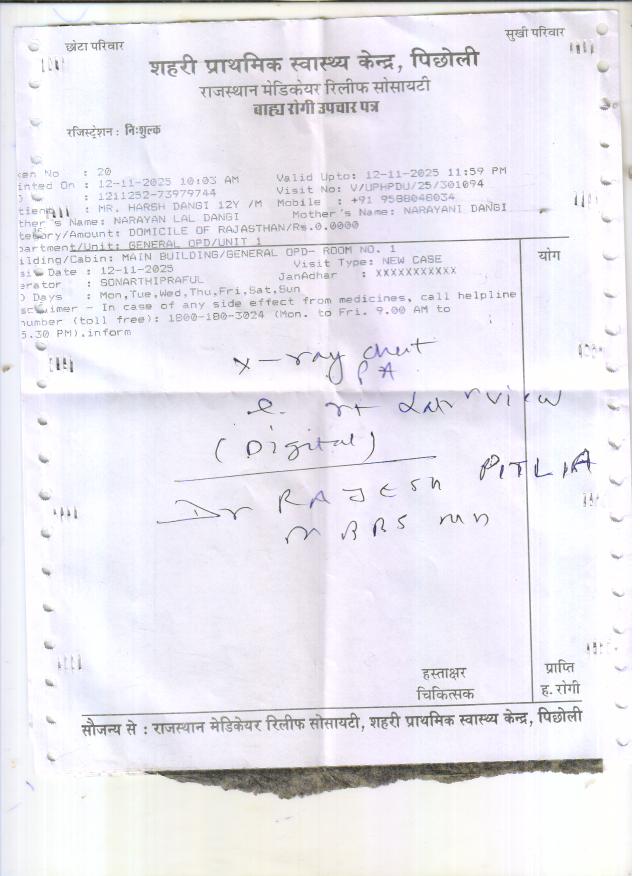 छोटा परिवार
सुखी परिवार
शहरी प्राथमिक स्वास्थ्य केन्द्र, पिछोली
राजस्थान मेडिकेयर रिलीफ सोसायटी
बाह्य रोगी उपचार पत्र
रजिस्ट्रेशन : निःशुल्क
ken No : 20
inted On : 12-11-2025 10:03 AM Valid Upto: 12-11-2025 11:59 PM
: 1211252-73979744 Visit No: V/UPHPDU/25/301094
tient : MR. HARSH DANGI 12Y /M Mobile : +91 9588048034
ther's Name: NARAYAN LAL DANGI Mother's Name: NARAYANI DANGI
tegory/Amount: DOMICILE OF RAJASTHAN/Rs.0.0000
partment/Unit: GENERAL OPD/UNIT 1
ilding/Cabin: MAIN BUILDING/GENERAL OPD- ROOM NO. 1
si Date : 12-11-2025 Visit Type: NEW CASE
erator : SONARTHIPRAFUL JanAdhar : XXXXXXXXXXX
D Days : Mon,Tue,Wed,Thu,Fri,Sat,Sun
sclaimer - In case of any side effect from medicines, call helpline
number (toll free): 1800-180-3024 (Mon. to Fri. 9.00 AM to
5.30 PM).inform
योग
x-ray chest
PA
rt view
(Digital)
Dr RAJESH PITLIA
MBBS MD
हस्ताक्षर
चिकित्सक
प्राप्ति
ह. रोगी
सौजन्य से : राजस्थान मेडिकेयर रिलीफ सोसायटी, शहरी प्राथमिक स्वास्थ्य केन्द्र, पिछोली